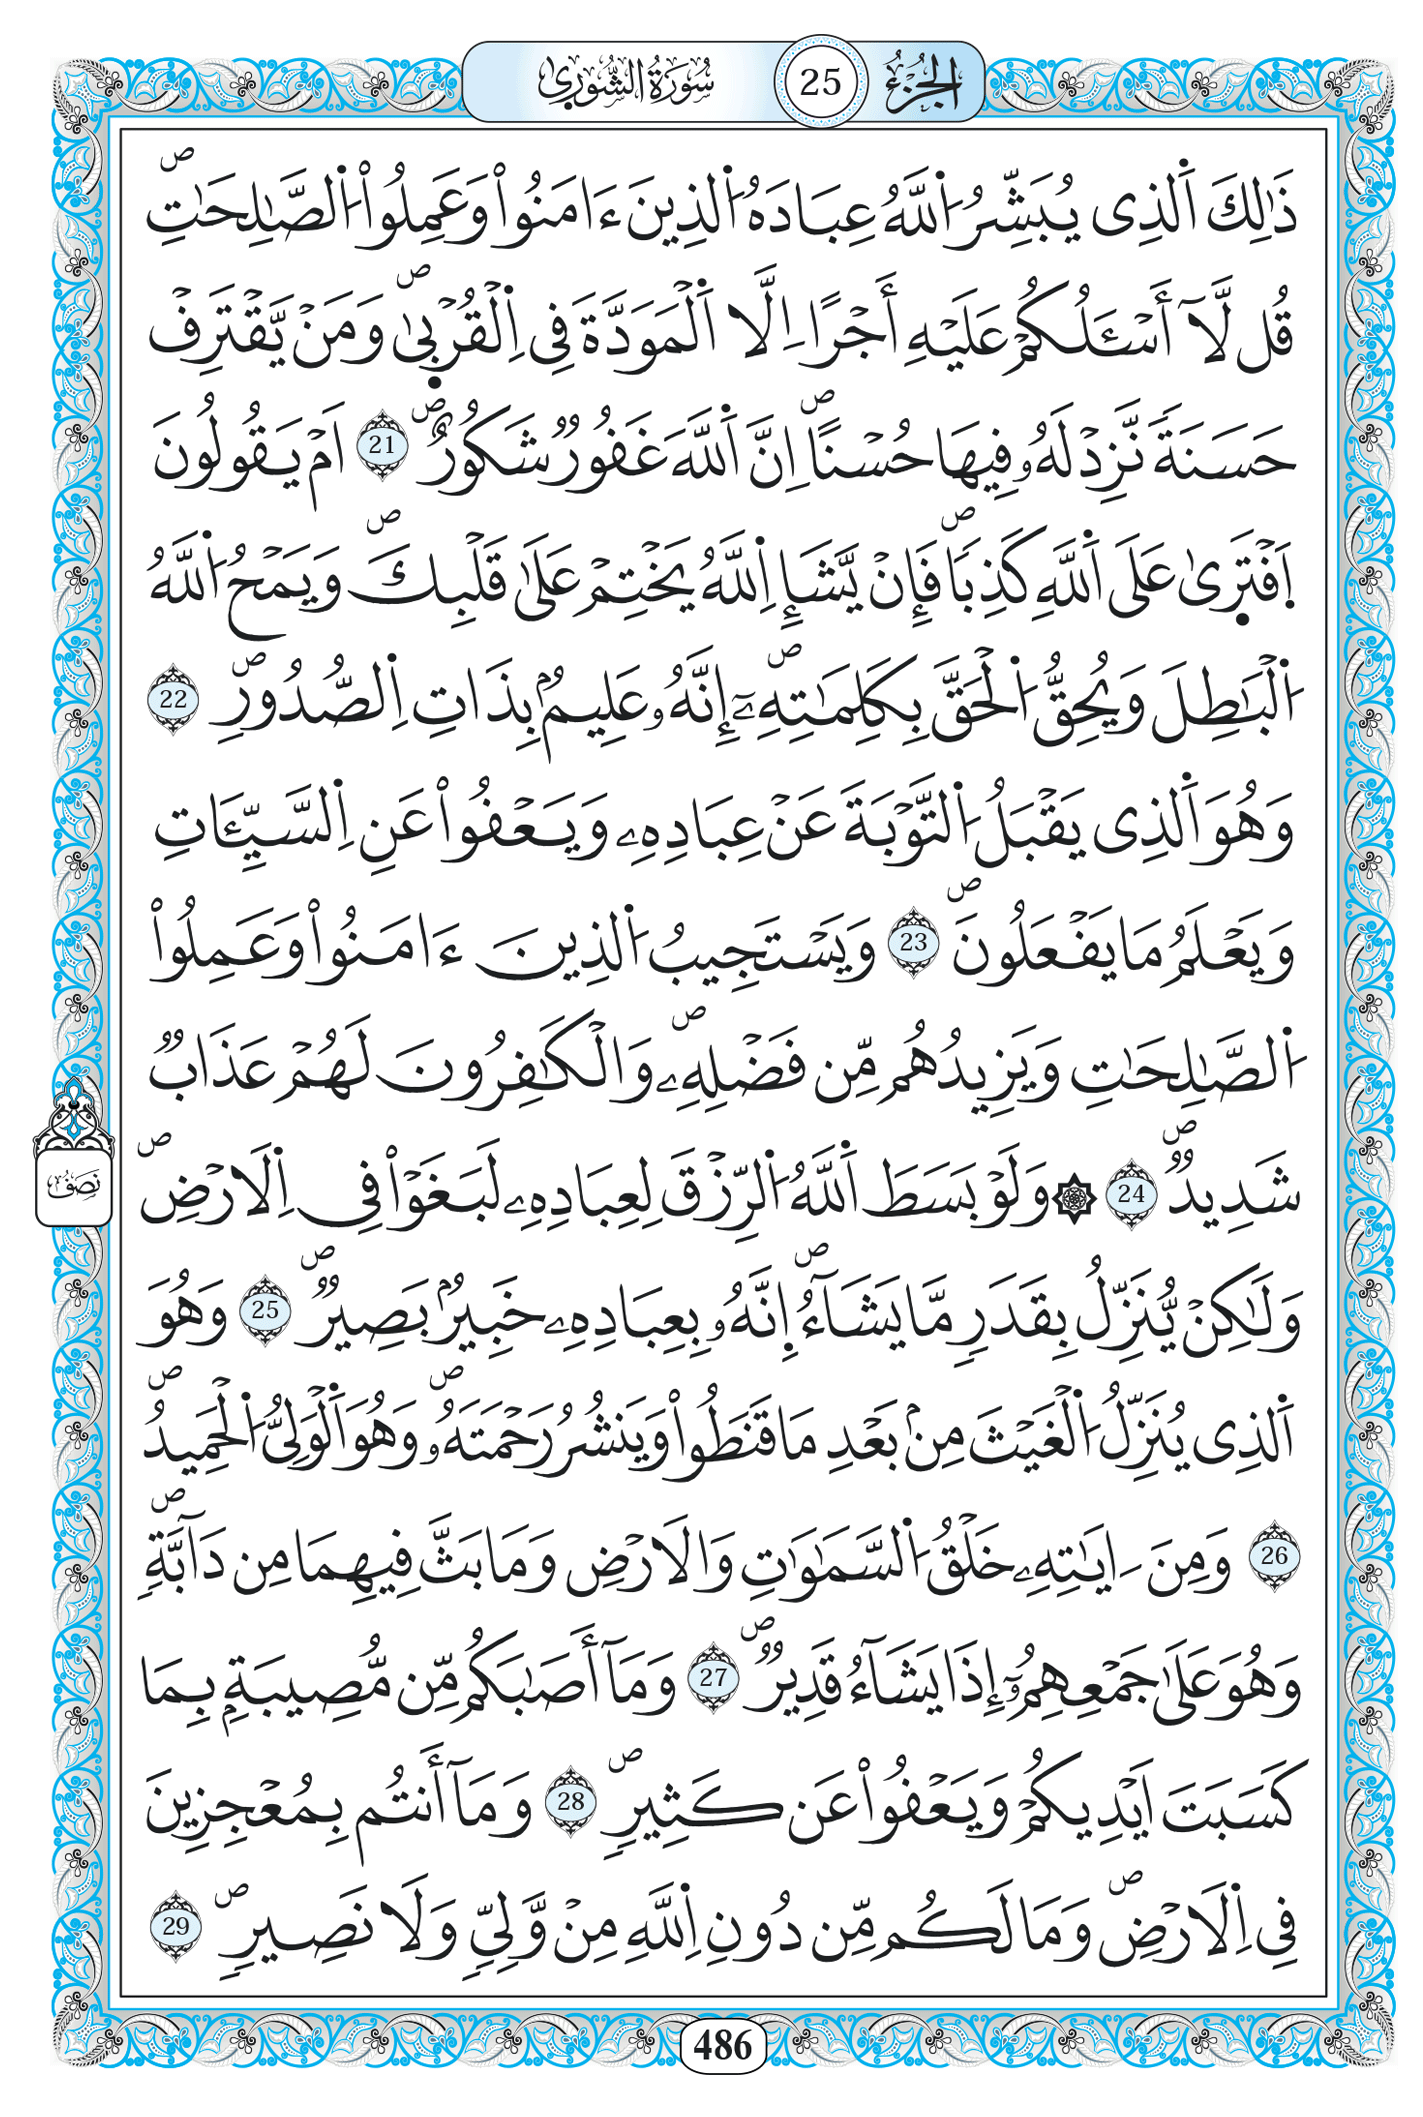 الجزء 25 سورة الشورى
ذَٰلِكَ اَلذِى يُبَشِّرُ اُللَّهُ عِبَادَهُ اُلذِينَ ءَامَنُواْ وَعَمِلُواْ اُلصَّٰلِحَٰتِۖ
قُل لَّآ أَسْـَٔلُكُمْ عَلَيْهِ أَجْرًا اِلَّا اَلْمَوَدَّةَ فِى اِلْقُرْبۭىٰۖ وَمَنْ يَّقْتَرِفْ
حَسَنَةً نَّزِدْ لَهُۥ فِيهَا حُسْنًاۖ اِنَّ اَللَّهَ غَفُورٌ شَكُورٌۖ 21 اَمْ يَقُولُونَ
اَفْتَرۭىٰ عَلَى اَللَّهِ كَذِبًاۖ فَإِنْ يَّشَإِ اِللَّهُ يَخْتِمْ عَلَىٰ قَلْبِكَۖ وَيَمْحُ اُللَّهُ
اُلْبَٰطِلَ وَيُحِقُّ اُلْحَقَّ بِكَلِمَٰتِهِۦٓۖ إِنَّهُۥ عَلِيمٌۢ بِذَاتِ اِلصُّدُورِۖ 22
وَهُوَ اَلذِى يَقْبَلُ اُلتَّوْبَةَ عَنْ عِبَادِهِۦ وَيَعْفُواْ عَنِ اِلسَّيِّـَٔاتِ
وَيَعْلَمُ مَا يَفْعَلُونَۖ 23 وَيَسْتَجِيبُ اُلذِينَ ءَامَنُواْ وَعَمِلُواْ
اُلصَّٰلِحَٰتِ وَيَزِيدُهُم مِّن فَضْلِهِۦۖ وَالْكَٰفِرُونَ لَهُمْ عَذَابٌ
شَدِيدٌۖ 24 ۞ وَلَوْ بَسَطَ اَللَّهُ اُلرِّزْقَ لِعِبَادِهِۦ لَبَغَوْاْ فِى اِلَارْضِۖ
وَلَٰكِنْ يُّنَزِّلُ بِقَدَرٍ مَّا يَشَآءُۖ إِنَّهُۥ بِعِبَادِهِۦ خَبِيرٌۢ بَصِيرٌۖ 25 وَهُوَ
اَلذِى يُنَزِّلُ اُلْغَيْثَ مِنۢ بَعْدِ مَا قَنَطُواْ وَيَنشُرُ رَحْمَتَهُۥۖ وَهُوَ اَلْوَلِىُّ اُلْحَمِيدُۖ
26 وَمِنَ اٰيَٰتِهِۦ خَلْقُ اُلسَّمَٰوَٰتِ وَالَارْضِ وَمَا بَثَّ فِيهِمَا مِن دَآبَّةٍۖ
وَهُوَ عَلَىٰ جَمْعِهِمُۥٓ إِذَا يَشَآءُ قَدِيرٌۖ 27 وَمَآ أَصَٰبَكُم مِّن مُّصِيبَةٍۢ بِمَا
كَسَبَتَ اَيْدِيكُمْ وَيَعْفُواْ عَن كَثِيرٍۖ 28 وَمَآ أَنتُم بِمُعْجِزِينَ
فِى اِلَارْضِۖ وَمَا لَكُم مِّن دُونِ اِللَّهِ مِنْ وَّلِىٍّ وَلَا نَصِيرٍۖ 29
نصف
486